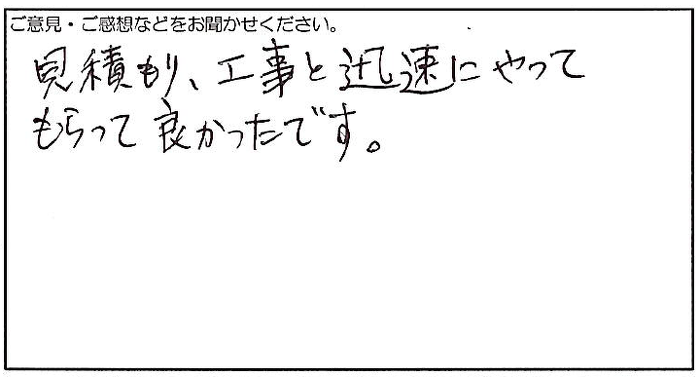 ご意見・ご感想などをお聞かせください。
見積もり、工事と迅速にやって
もらって良かったです。